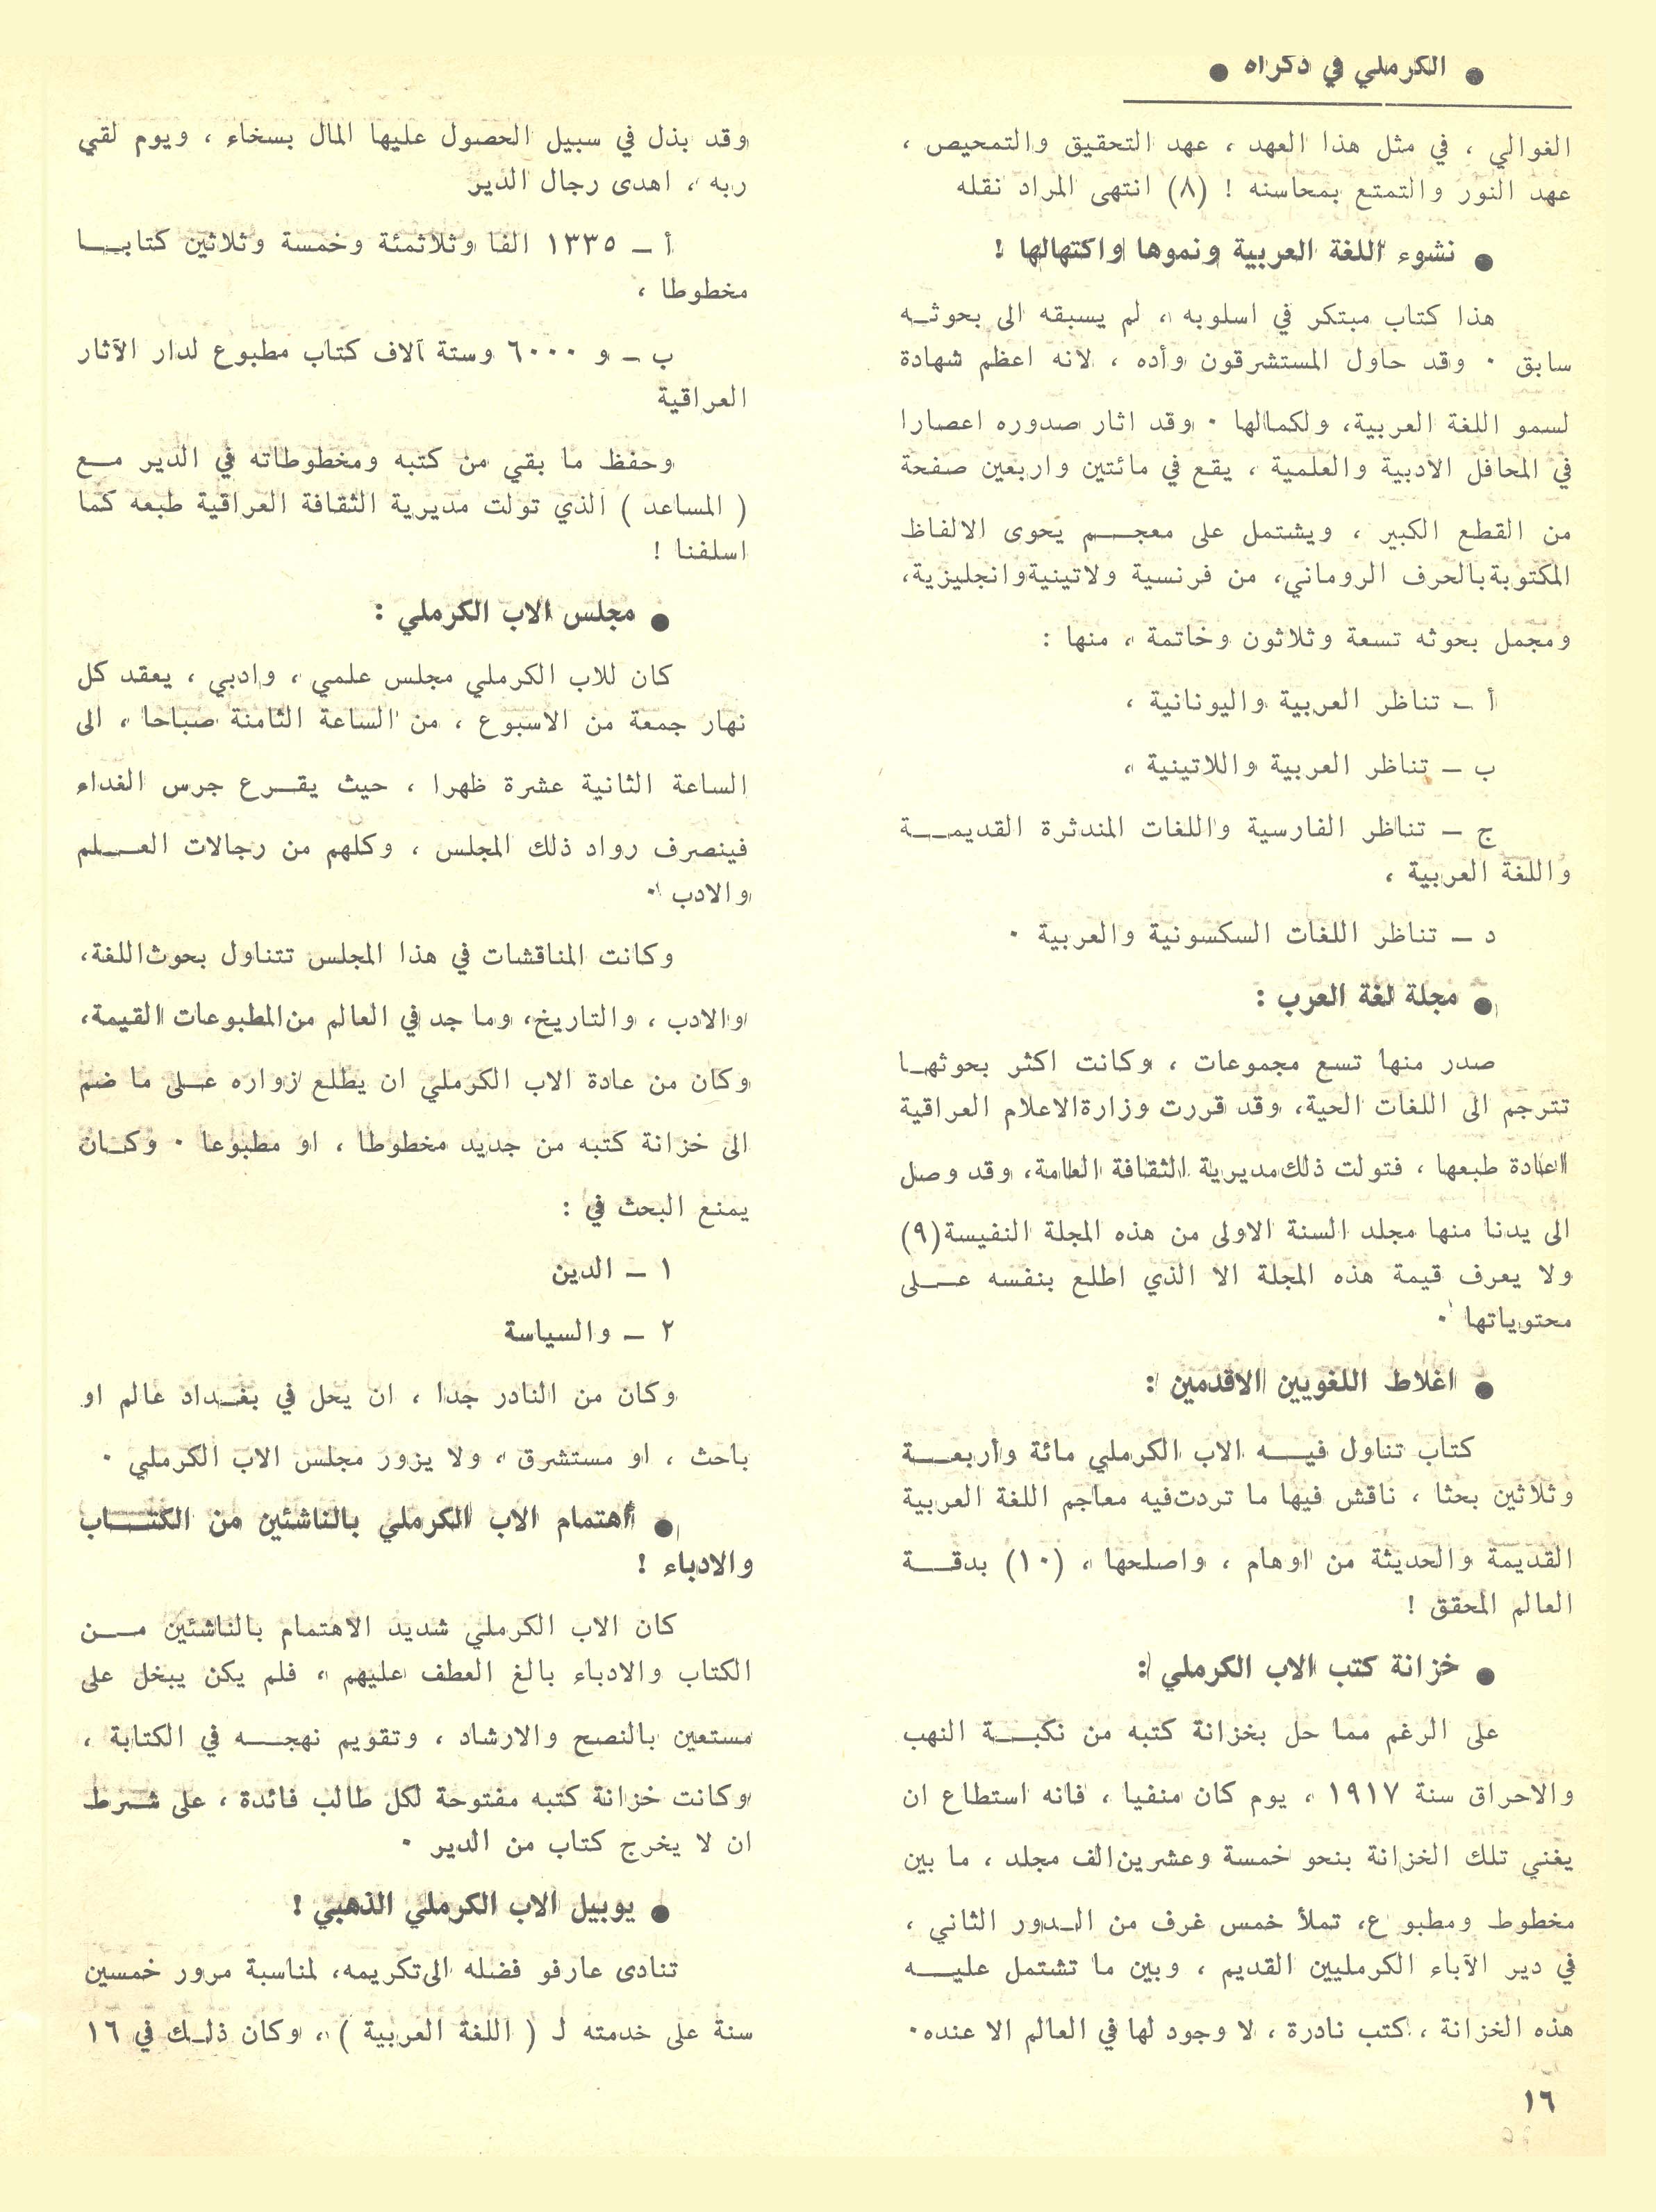 ● الكرملي في ذكراه ●
الغوالي ، في مثل هذا العهد ، عهد التحقيق والتمحيص ،
عهد النور والتمتع بمحاسنه ! (٨) انتهى المراد نقله
● نشوء اللغة العربية ونموها واكتهالها !
هذا كتاب مبتكر في اسلوبه ، لم يسبقه الى بحوثه
سابق . وقد حاول المستشرقون وأده ، لانه اعظم شهادة
لسمو اللغة العربية، ولكمالها . وقد اثار صدوره اعصارا
في المحافل الادبية والعلمية ، يقع في مائتين واربعين صفحة
من القطع الكبير ، ويشتمل على معجم يحوى الالفاظ
المكتوبة بالحرف الروماني، من فرنسية ولاتينية وانجليزية،
ومجمل بحوثه تسعة وثلاثون وخاتمة ، منها :
أ – تناظر العربية واليونانية ،
ب – تناظر العربية واللاتينية ،
ج – تناظر الفارسية واللغات المندثرة القديمة
واللغة العربية ،
د – تناظر اللغات السكسونية والعربية .
● مجلة لغة العرب :
صدر منها تسع مجموعات ، وكانت اكثر بحوثها
تترجم الى اللغات الحية، وقد قررت وزارة الاعلام العراقية
اعادة طبعها ، فتولت ذلك مديرية الثقافة العامة، وقد وصل
الى يدنا منها مجلد السنة الاولى من هذه المجلة النفيسة (٩)
ولا يعرف قيمة هذه المجلة الا الذي اطلع بنفسه على
محتوياتها .
● اغلاط اللغويين الاقدمين :
كتاب تناول فيه الاب الكرملي مائة وأربعة
وثلاثين بحثا ، ناقش فيها ما تردت فيه معاجم اللغة العربية
القديمة والحديثة من اوهام ، واصلحها ، (١٠) بدقة
العالم المحقق !
● خزانة كتب الاب الكرملي :
على الرغم مما حل بخزانة كتبه من نكبة النهب
والاحراق سنة ١٩١٧ ، يوم كان منفيا ، فانه استطاع ان
يغني تلك الخزانة بنحو خمسة وعشرين الف مجلد ، ما بين
مخطوط ومطبوع، تملأ خمس غرف من الدور الثاني ،
في دير الآباء الكرمليين القديم ، وبين ما تشتمل عليه
هذه الخزانة ، كتب نادرة ، لا وجود لها في العالم الا عنده.
وقد بذل في سبيل الحصول عليها المال بسخاء ، ويوم لقي
ربه ، اهدى رجال الدير
أ – ١٣٣٥ الفا وثلاثمئة وخمسة وثلاثين كتابا
مخطوطا ،
ب – و ٦٠٠٠ وستة آلاف كتاب مطبوع لدار الآثار
العراقية
وحفظ ما بقي من كتبه ومخطوطاته في الدير مع
( المساعد ) الذي تولت مديرية الثقافة العراقية طبعه كما
اسلفنا !
● مجلس الاب الكرملي :
كان للاب الكرملي مجلس علمي ، وادبي ، يعقد كل
نهار جمعة من الاسبوع ، من الساعة الثامنة صباحا ، الى
الساعة الثانية عشرة ظهرا ، حيث يقرع جرس الغداء
فينصرف رواد ذلك المجلس ، وكلهم من رجالات العلم
والادب .
وكانت المناقشات في هذا المجلس تتناول بحوث اللغة،
والادب ، والتاريخ، وما جد في العالم من المطبوعات القيمة،
وكان من عادة الاب الكرملي ان يطلع زواره على ما ضم
الى خزانة كتبه من جديد مخطوطا ، او مطبوعا . وكان
يمنع البحث في :
١ – الدين
٢ – والسياسة
وكان من النادر جدا ، ان يحل في بغداد عالم او
باحث ، او مستشرق ، ولا يزور مجلس الاب الكرملي .
● أهتمام الاب الكرملي بالناشئين من الكتاب
والادباء !
كان الاب الكرملي شديد الاهتمام بالناشئين من
الكتاب والادباء بالغ العطف عليهم ، فلم يكن يبخل على
مستعين بالنصح والارشاد ، وتقويم نهجه في الكتابة ،
وكانت خزانة كتبه مفتوحة لكل طالب فائدة ، على شرط
ان لا يخرج كتاب من الدير .
● يوبيل الاب الكرملي الذهبي !
تنادى عارفو فضله الى تكريمه، لمناسبة مرور خمسين
سنة على خدمته لـ ( اللغة العربية ) ، وكان ذلك في ١٦
١٦